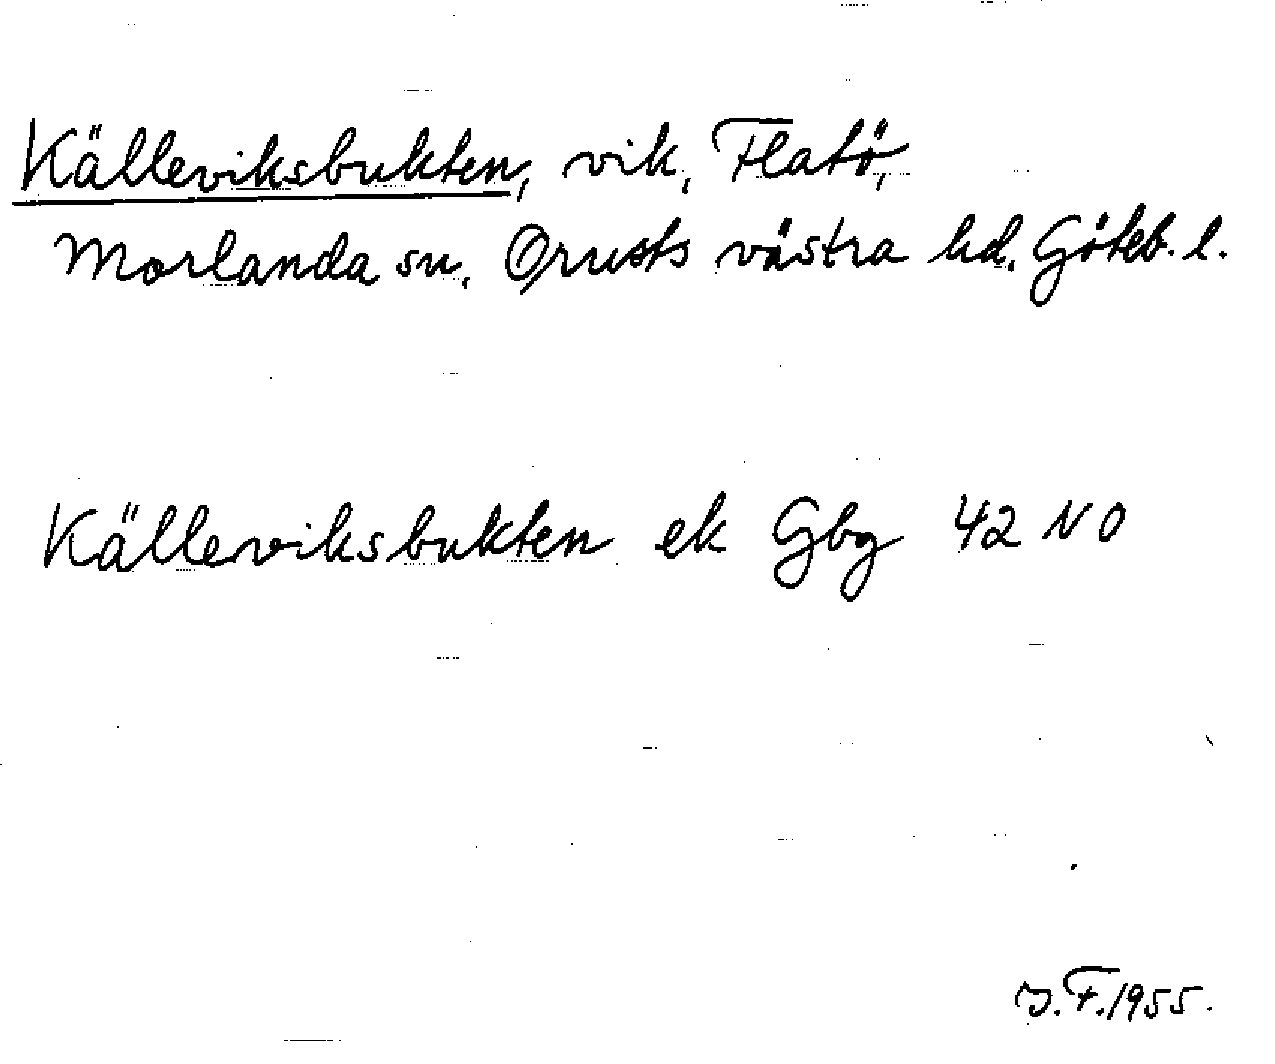 Källeviksbukten, vik, Flatö,
Morlanda sn, Orusts västra hd. Göteb. l.
Källeviksbukten ek Gbg 42 NO
J. F. 1955.